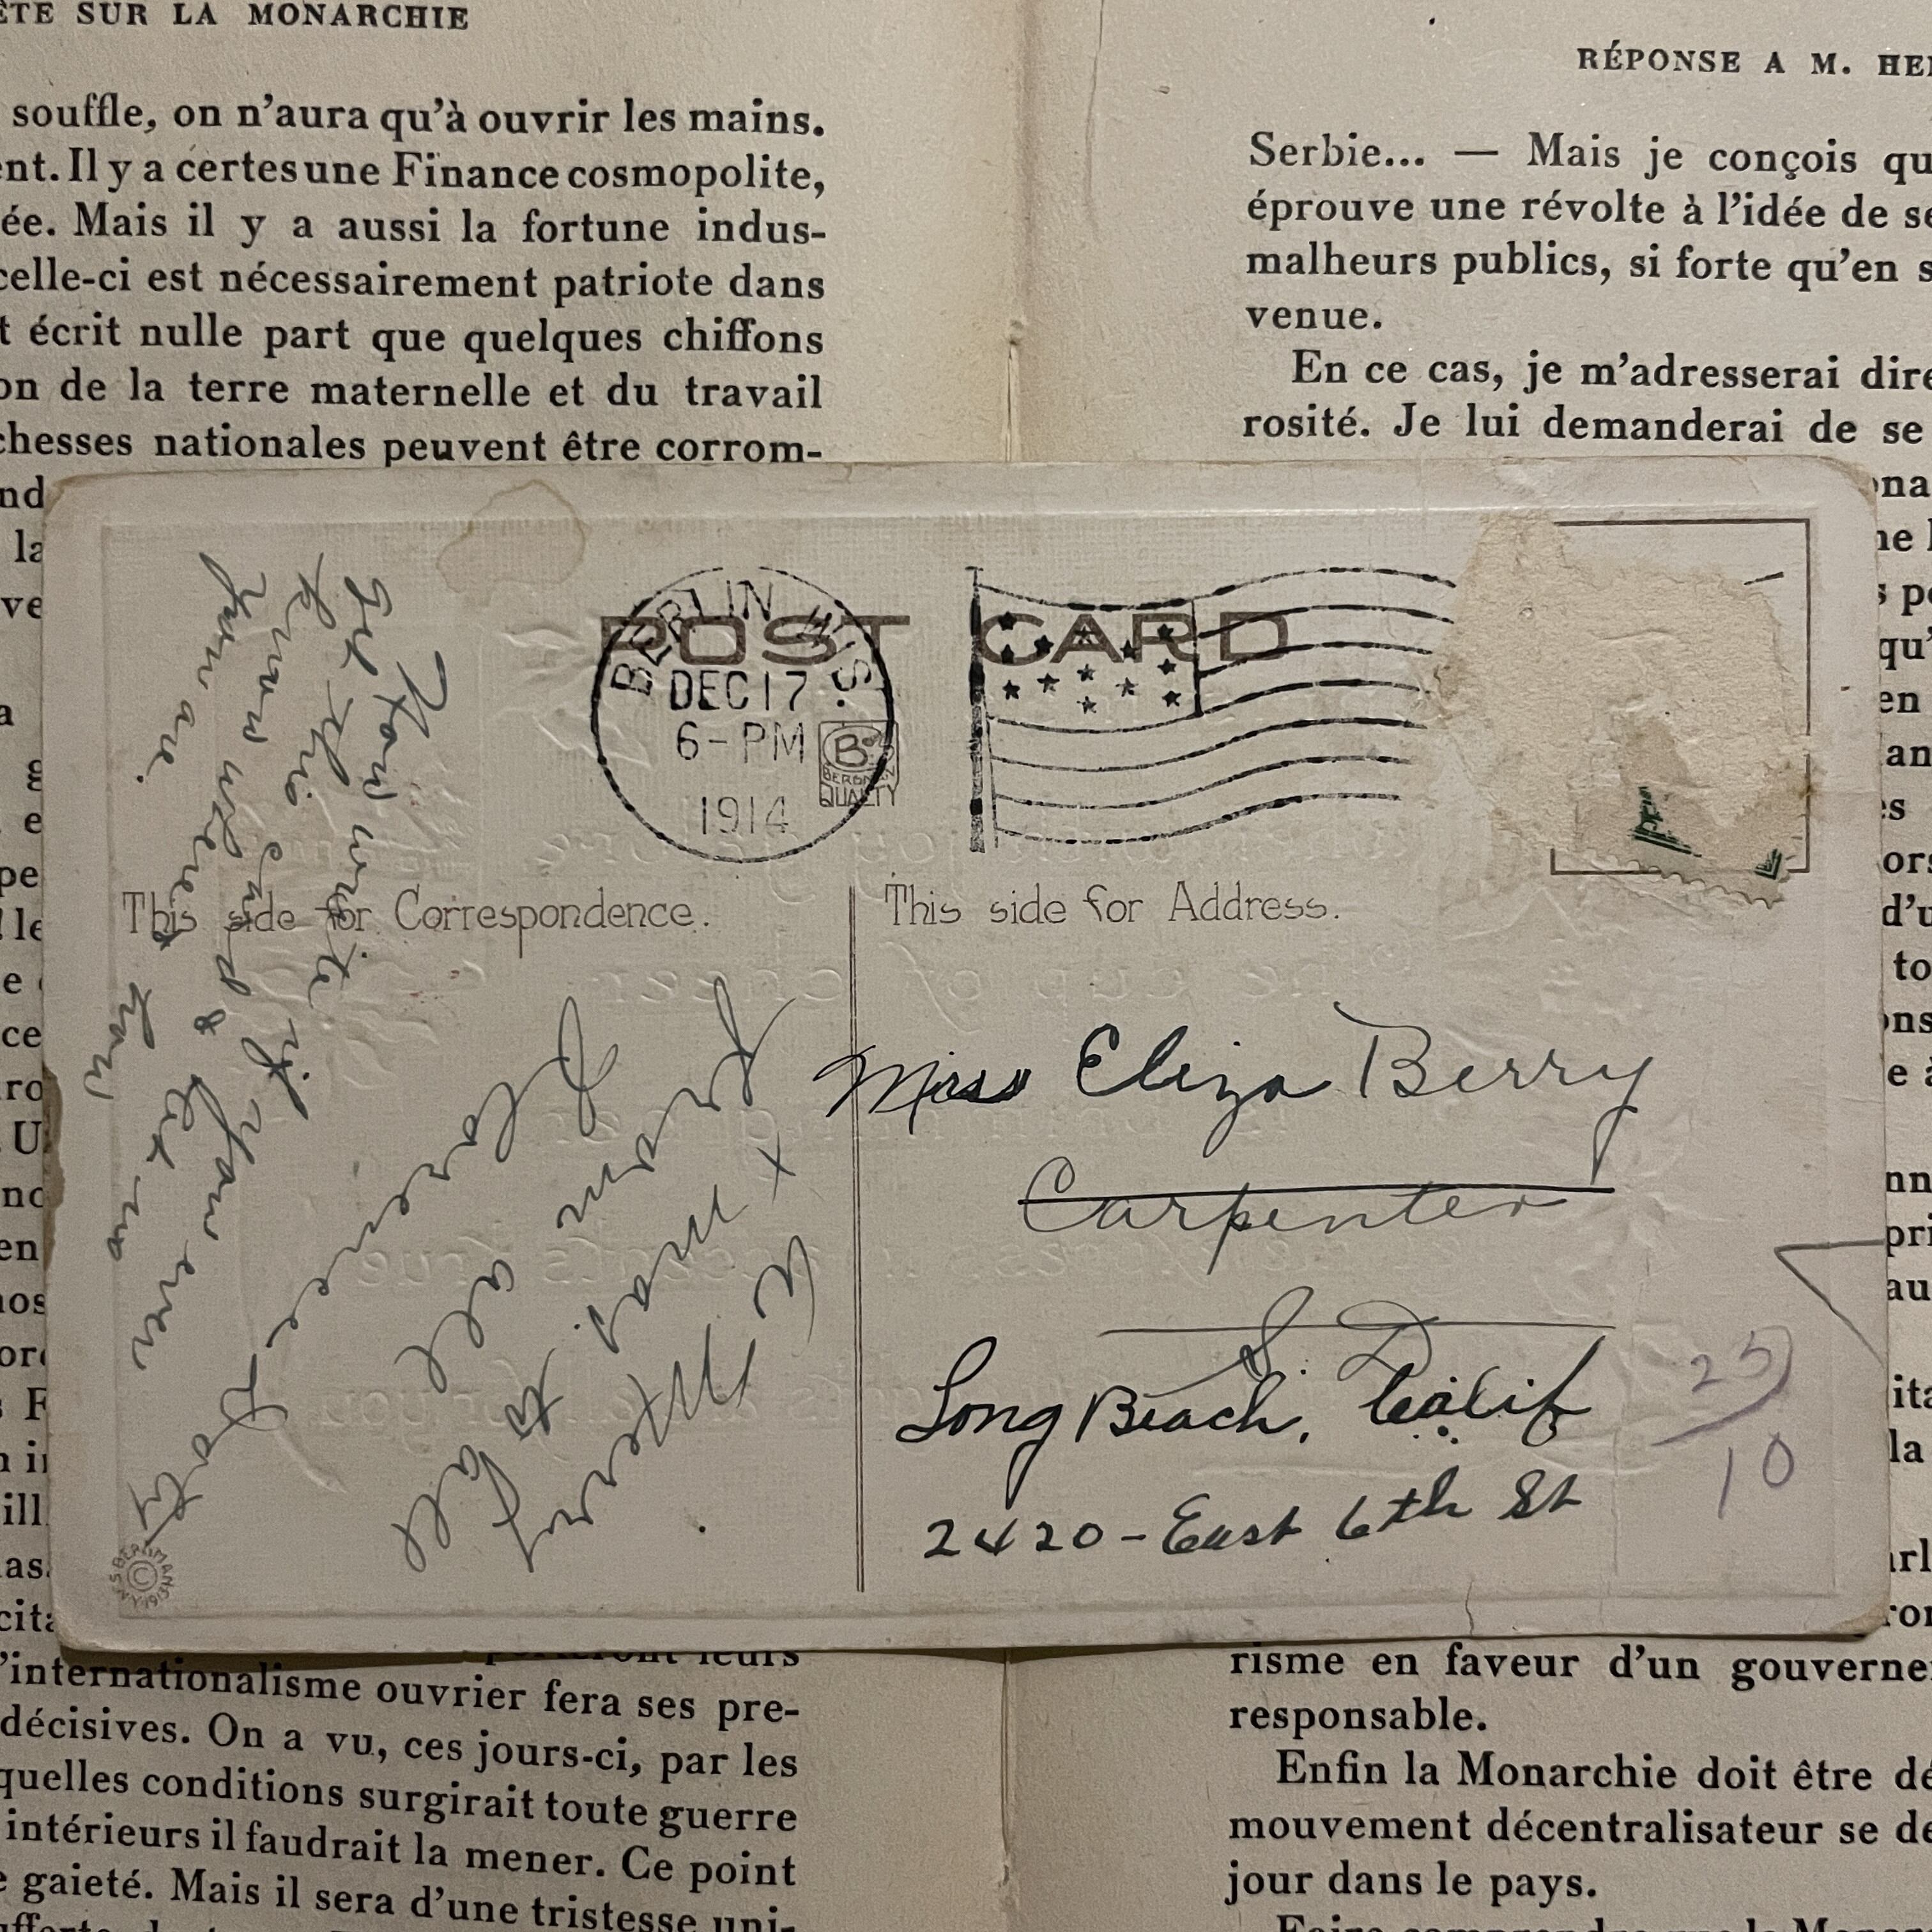 ÊTE SUR LA MONARCHIE
souffle, on n'aura qu'à ouvrir les mains.
ent. Il y a certes une Finance cosmopolite,
ée. Mais il y a aussi la fortune indus-
celle-ci est nécessairement patriote dans
t écrit nulle part que quelques chiffons
on de la terre maternelle et du travail
chesses nationales peuvent être corrom-
RÉPONSE A M. HE
Serbie... — Mais je conçois qu
éprouve une révolte à l'idée de se
malheurs publics, si forte qu'en s
venue.
En ce cas, je m'adresserai dire
rosité. Je lui demanderai de se
POST CARD
BERLIN WIS.
DEC 17
6-PM
1914
BERGMAN
QUALITY
This side for Correspondence.
This side for Address.
A Merry
Xmas to all
from all
Florence Doty
write if you ever
get this card & let me
know where & how
you are.
Miss Eliza Berry
Carpenter
S. D.
Long Beach, Calif
2420-East 6th St
25
10
leurs
l'internationalisme ouvrier fera ses pre-
décisives. On a vu, ces jours-ci, par les
quelles conditions surgirait toute guerre
intérieurs il faudrait la mener. Ce point
e gaieté. Mais il sera d'une tristesse uni-
risme en faveur d'un gouverne
responsable.
Enfin la Monarchie doit être dé
mouvement décentralisateur se de
jour dans le pays.